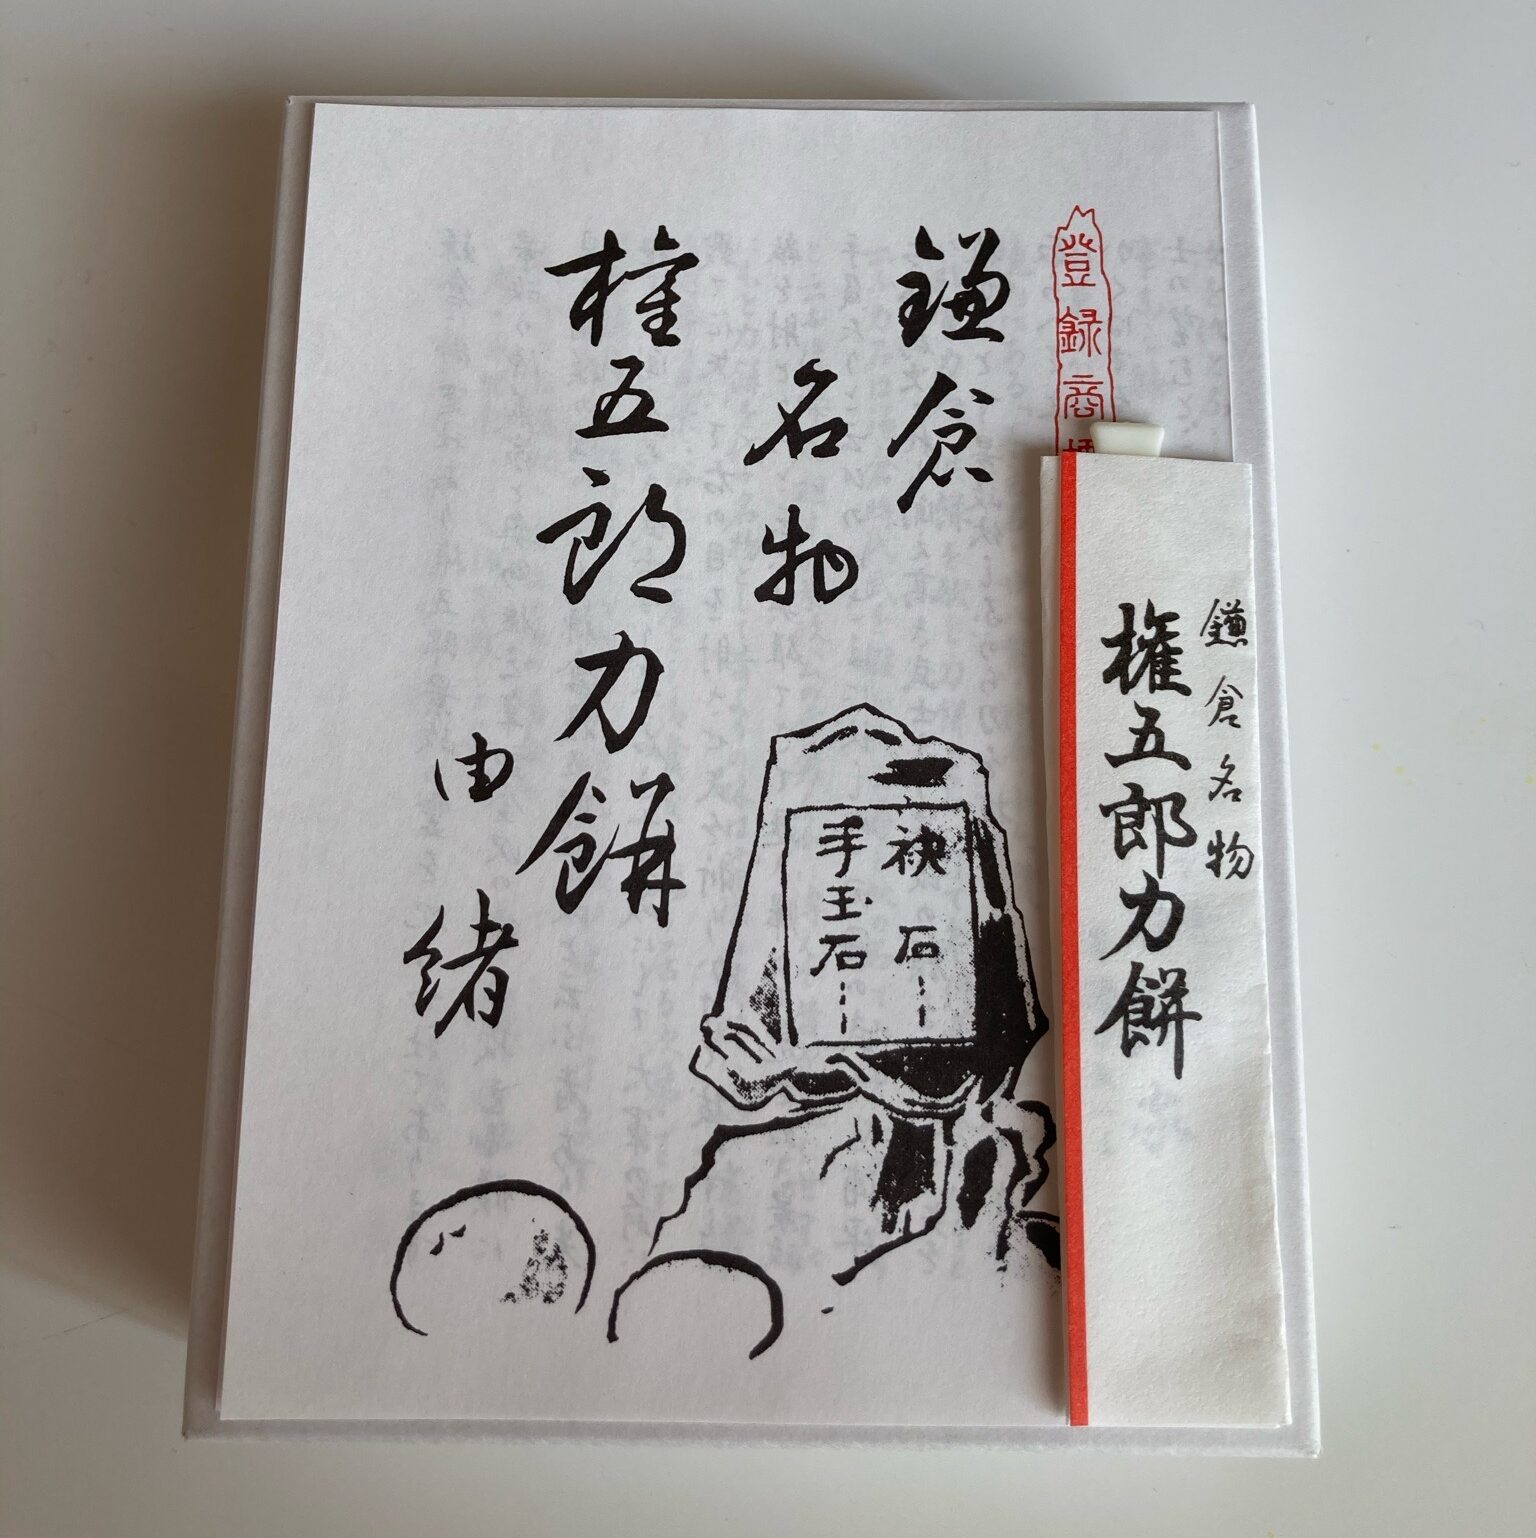 登録商
鎌倉
名物
権五郎力餅
由緒
袂石
手玉石
鎌倉名物
権五郎力餅